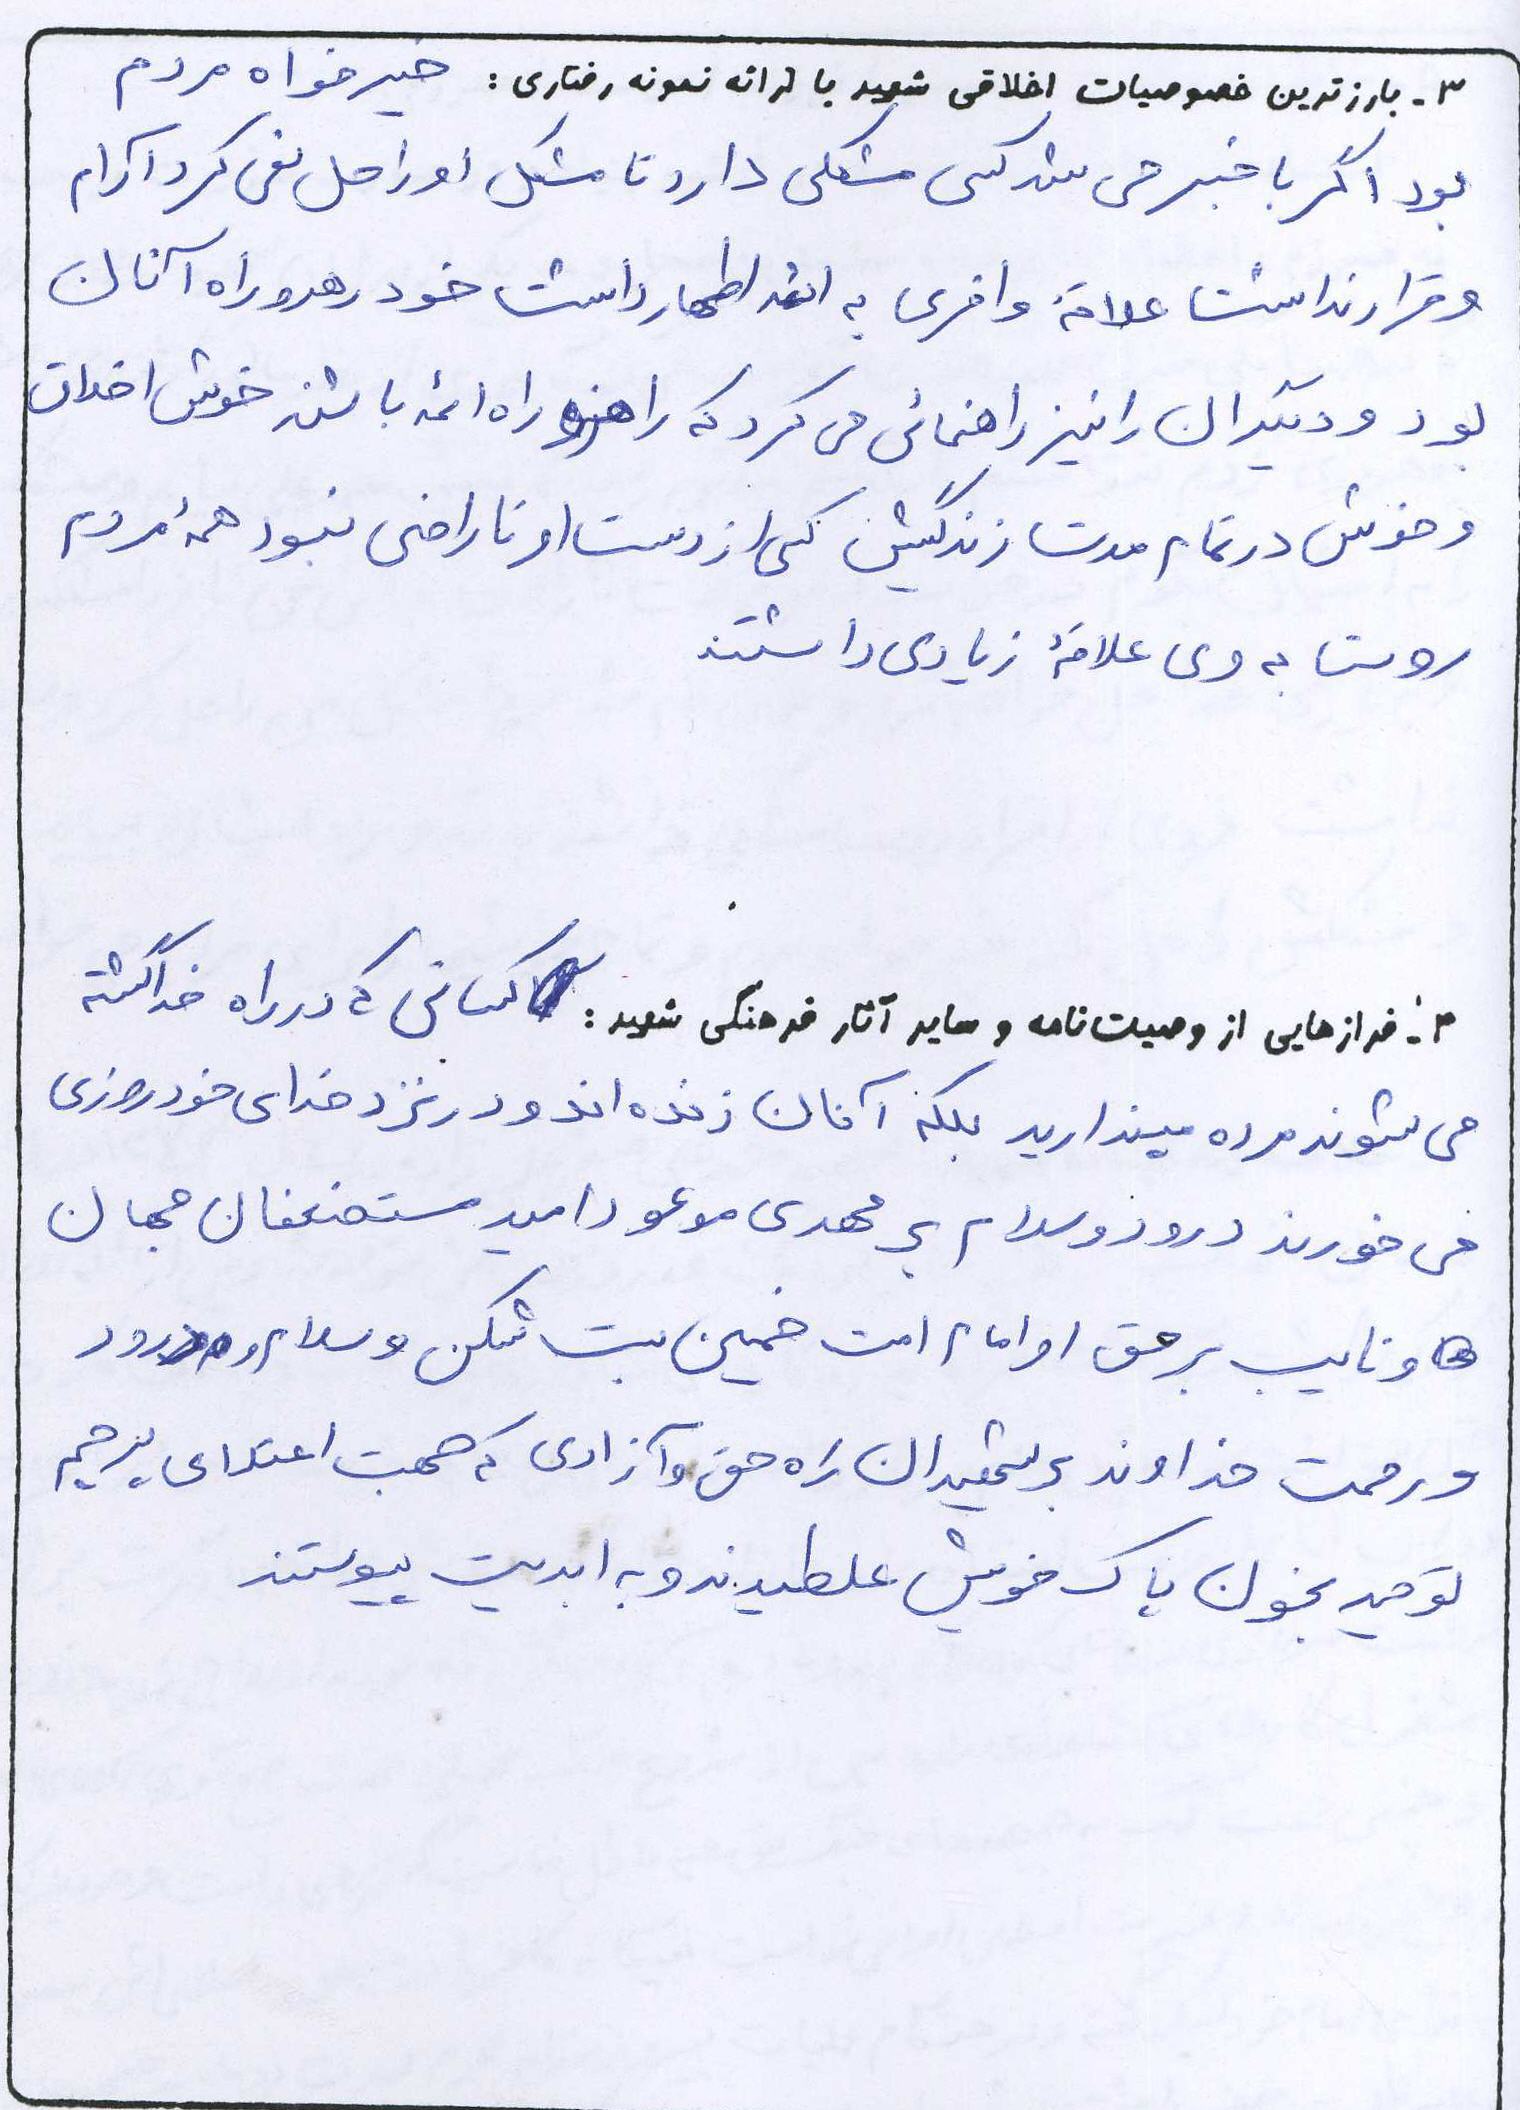 ۳- بارزترین خصوصیات اخلاقی شهید با ارائه نمونه رفتاری : خیرخواه مردم
بود اگر با خبر می شد کسی مشکلی دارد تا مشکل او را حل نمی کرد آرام
و قرار نداشت علاقهٔ وافری به ائمه اطهار داشت خود رهرو راه آنان
بود و دیگران را نیز راهنمائی می کرد که راهرو راه ائمه باشند خوش اخلاق
و خوش در تمام مدت زندگیش کسی از دست او ناراضی نبود همهٔ مردم
روستا به وی علاقهٔ زیادی داشتند
۴- فرازهایی از وصیت‌نامه و سایر آثار فرهنگی شهید : کسانی که در راه خدا کشته
می شوند مرده مپندارید بلکه آنان زنده اند و در نزد خدای خود روزی
می خورند درود و سلام بر مهدی موعود امید مستضعفان جهان
و نایب بر حق او امام امت خمینی بت شکن و سلام و درود
و رحمت خداوند بر شهیدان راه حق و آزادی که جهت اعتلای پرچم
توحید بخون پاک خویش غلطیدند و به ابدیت پیوستند